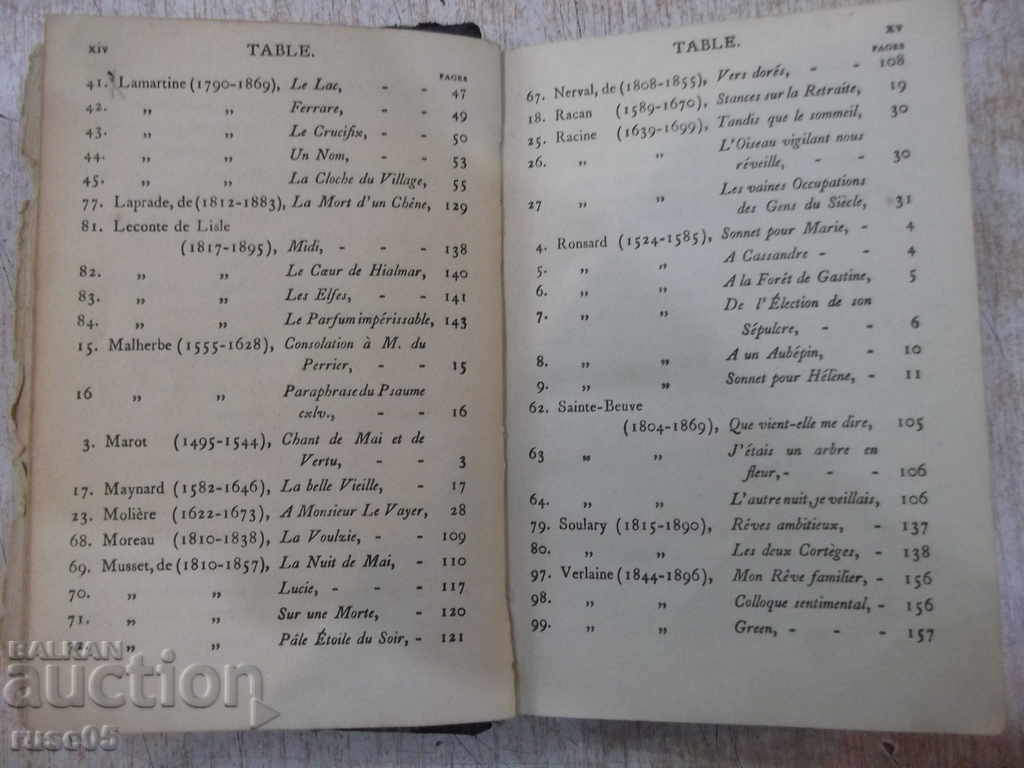 xiv TABLE.
PAGES
41. Lamartine (1790-1869), Le Lac, - - 47
42. „ „ Ferrare, - - 49
43. „ „ Le Crucifix, - - 50
44. „ „ Un Nom, - - 53
45. „ „ La Cloche du Village, 55
77. Laprade, de (1812-1883), La Mort d'un Chêne, 129
81. Leconte de Lisle
(1817-1895), Midi, - - - 138
82. „ „ Le Cœur de Hialmar, 140
83. „ „ Les Elfes, - - 141
84. „ „ Le Parfum impérissable, 143
15. Malherbe (1555-1628), Consolation à M. du
Perrier, - - 15
16 „ „ Paraphrase du Psaume
cxlv., - - 16
3. Marot (1495-1544), Chant de Mai et de
Vertu, - - 3
17. Maynard (1582-1646), La belle Vieille, - 17
23. Molière (1622-1673), A Monsieur Le Vayer, 28
68. Moreau (1810-1838), La Voulzie, - - 109
69. Musset, de (1810-1857), La Nuit de Mai, - 110
70. „ „ Lucie, - - - 117
71. „ „ Sur une Morte, - 120
72. „ „ Pâle Étoile du Soir, - 121
TABLE. xv
PAGES
67. Nerval, de (1808-1855), Vers dorés, - - 108
18. Racan (1589-1670), Stances sur la Retraite, 19
25. Racine (1639-1699), Tandis que le sommeil, 30
26. „ „ L'Oiseau vigilant nous
réveille, - - 30
27 „ „ Les vaines Occupations
des Gens du Siècle, 31
4. Ronsard (1524-1585), Sonnet pour Marie, - 4
5. „ „ A Cassandre - - 4
6. „ „ A la Forêt de Gastine, 5
7. „ „ De l'Élection de son
Sépulcre, - - 6
8. „ „ A un Aubépin, - 10
9. „ „ Sonnet pour Hélène, - 11
62. Sainte-Beuve
(1804-1869), Que vient-elle me dire, 105
63 „ „ J'étais un arbre en
fleur, - - - 106
64. „ „ L'autre nuit, je veillais, 106
79. Soulary (1815-1890), Rêves ambitieux, - 137
80. „ „ Les deux Cortèges, - 138
97. Verlaine (1844-1896), Mon Rêve familier, - 156
98. „ „ Colloque sentimental, - 156
99. „ „ Green, - - - 157
BALKAN
auction
ruse05